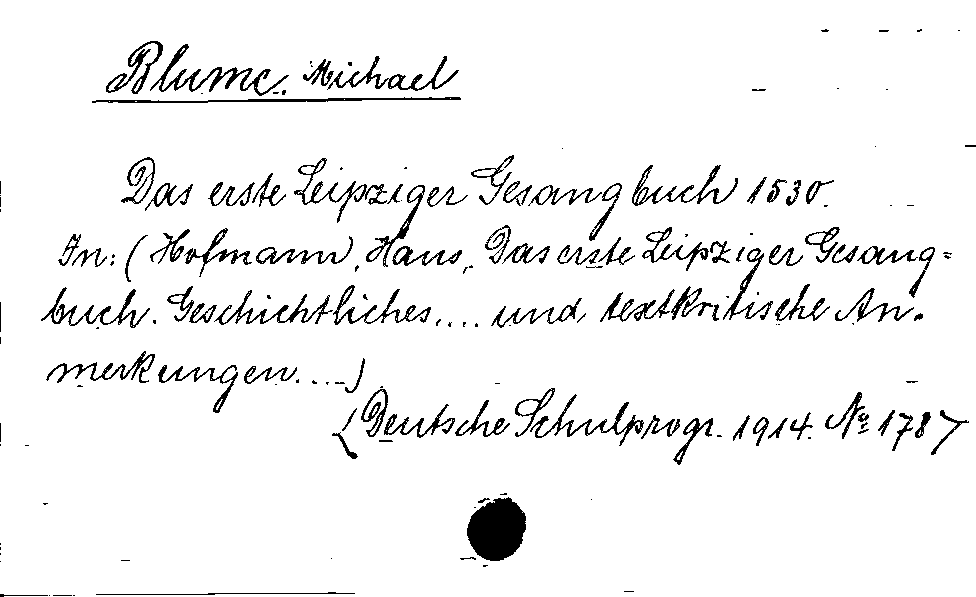 Blume. Michael
Das erste Leipziger Gesangbuch 1530.
In: (Hofmann, Hans, Das erste Leipziger Gesang=
buch. Geschichtliches.... und textkritische An-
merkungen....)
(Deutsche Schulprogr. 1914. No 1787